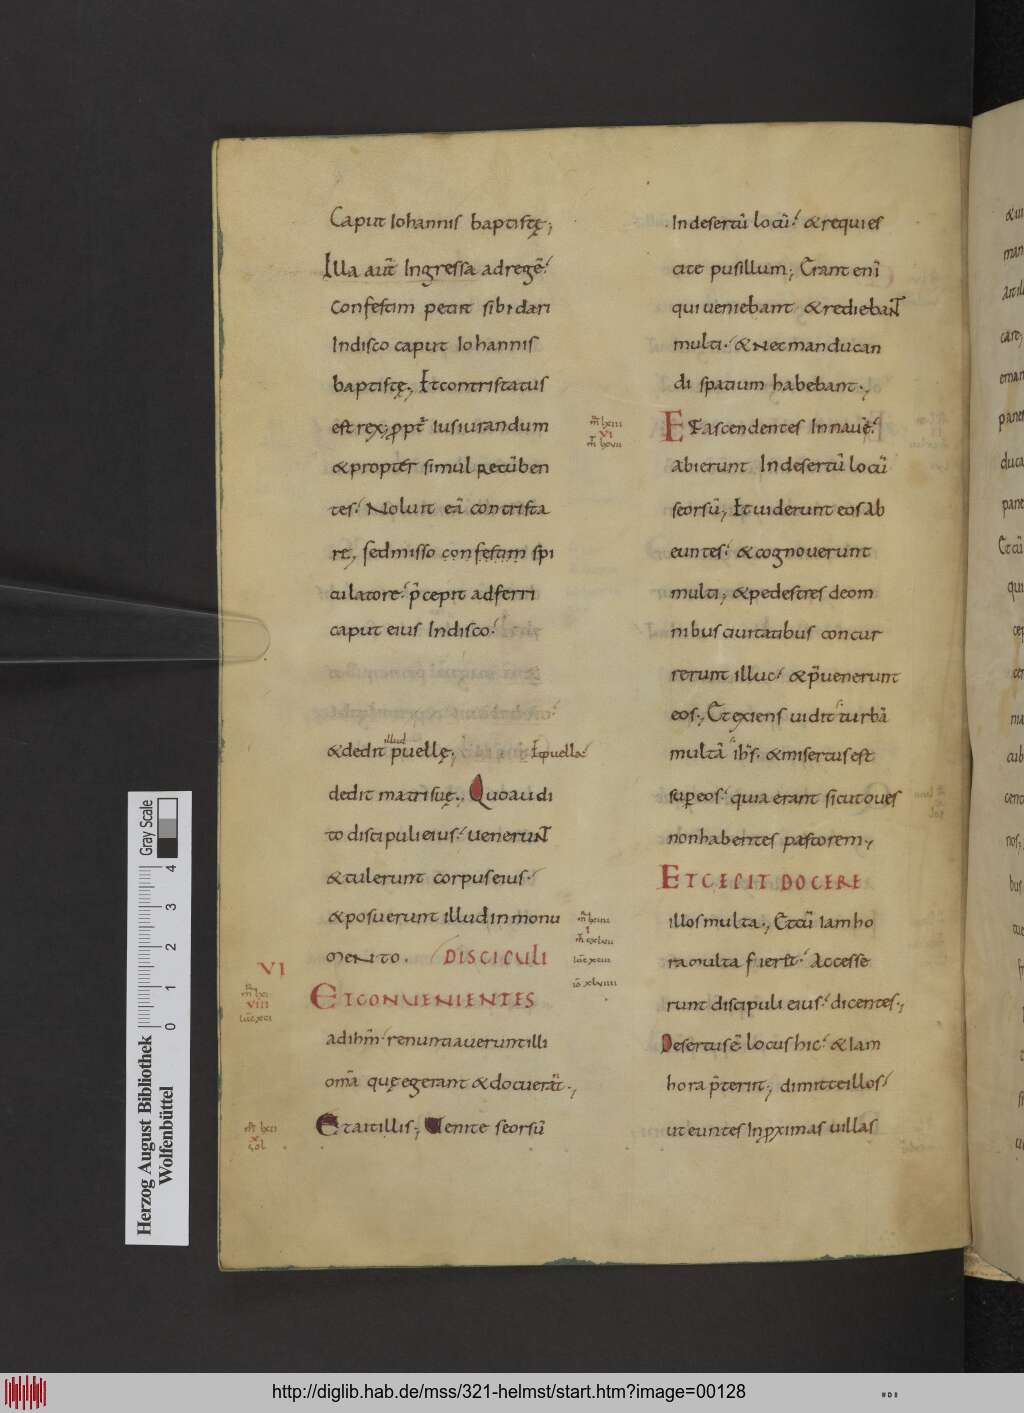 Caput Iohannis baptistę;
Illa aut̄ Ingressa adregē.
Confestim petiit sibi dari
Indisco caput Iohannis
baptistę; Et contristatus
est rex; ꝓpt̄ iusiurandum
& propter simul recūben
tes. Noluit eā contrista
re; sed misso confestim spi
culatore. p̄cepit adferri
caput eius Indisco.
& dedit illud puellę; Et puella
dedit matri suę; Quo audi
to discipuli eius. uenerunt
& tulerunt corpus eius.
& posuerunt illud in monu
mento. DISCIPULI
VI
ET CONUENIENTES
VIII
ad ihm̄ renuntiauerunt illi
om̄a quę egerant & docuerāt;
Et ait illis; Uenite seorsū
In desertū locū. & requies
cite pusillum; Erant eni
qui ueniebant & rediebant
multi. & nec manducan
di spatium habebant;
VI
Et ascendentes In nauē.
abierunt In desertū locū
seorsū; Et uiderunt eos ab
euntes. & cognouerunt
multi; & pedestres de om
nibus ciuitatibus concur
rerunt illuc. & p̄uenerunt
eos; Et exiens uidit turbā
multā ihs̄. & misertus est
suꝑ eos. quia erant sicut oues
non habentes pastorem;
ET CEPIT DOCERE
illos multa; Et cū iam ho
ra multa fieret. Accesse
runt discipuli eius. dicentes;
Desertus ē locus hic. & iam
hora p̄teriit; dimitte illos
ut euntes In ꝓximas uillas
Herzog August Bibliothek
Wolfenbüttel
0 1 2 3 4
Gray Scale
http://diglib.hab.de/mss/321-helmst/start.htm?image=00128